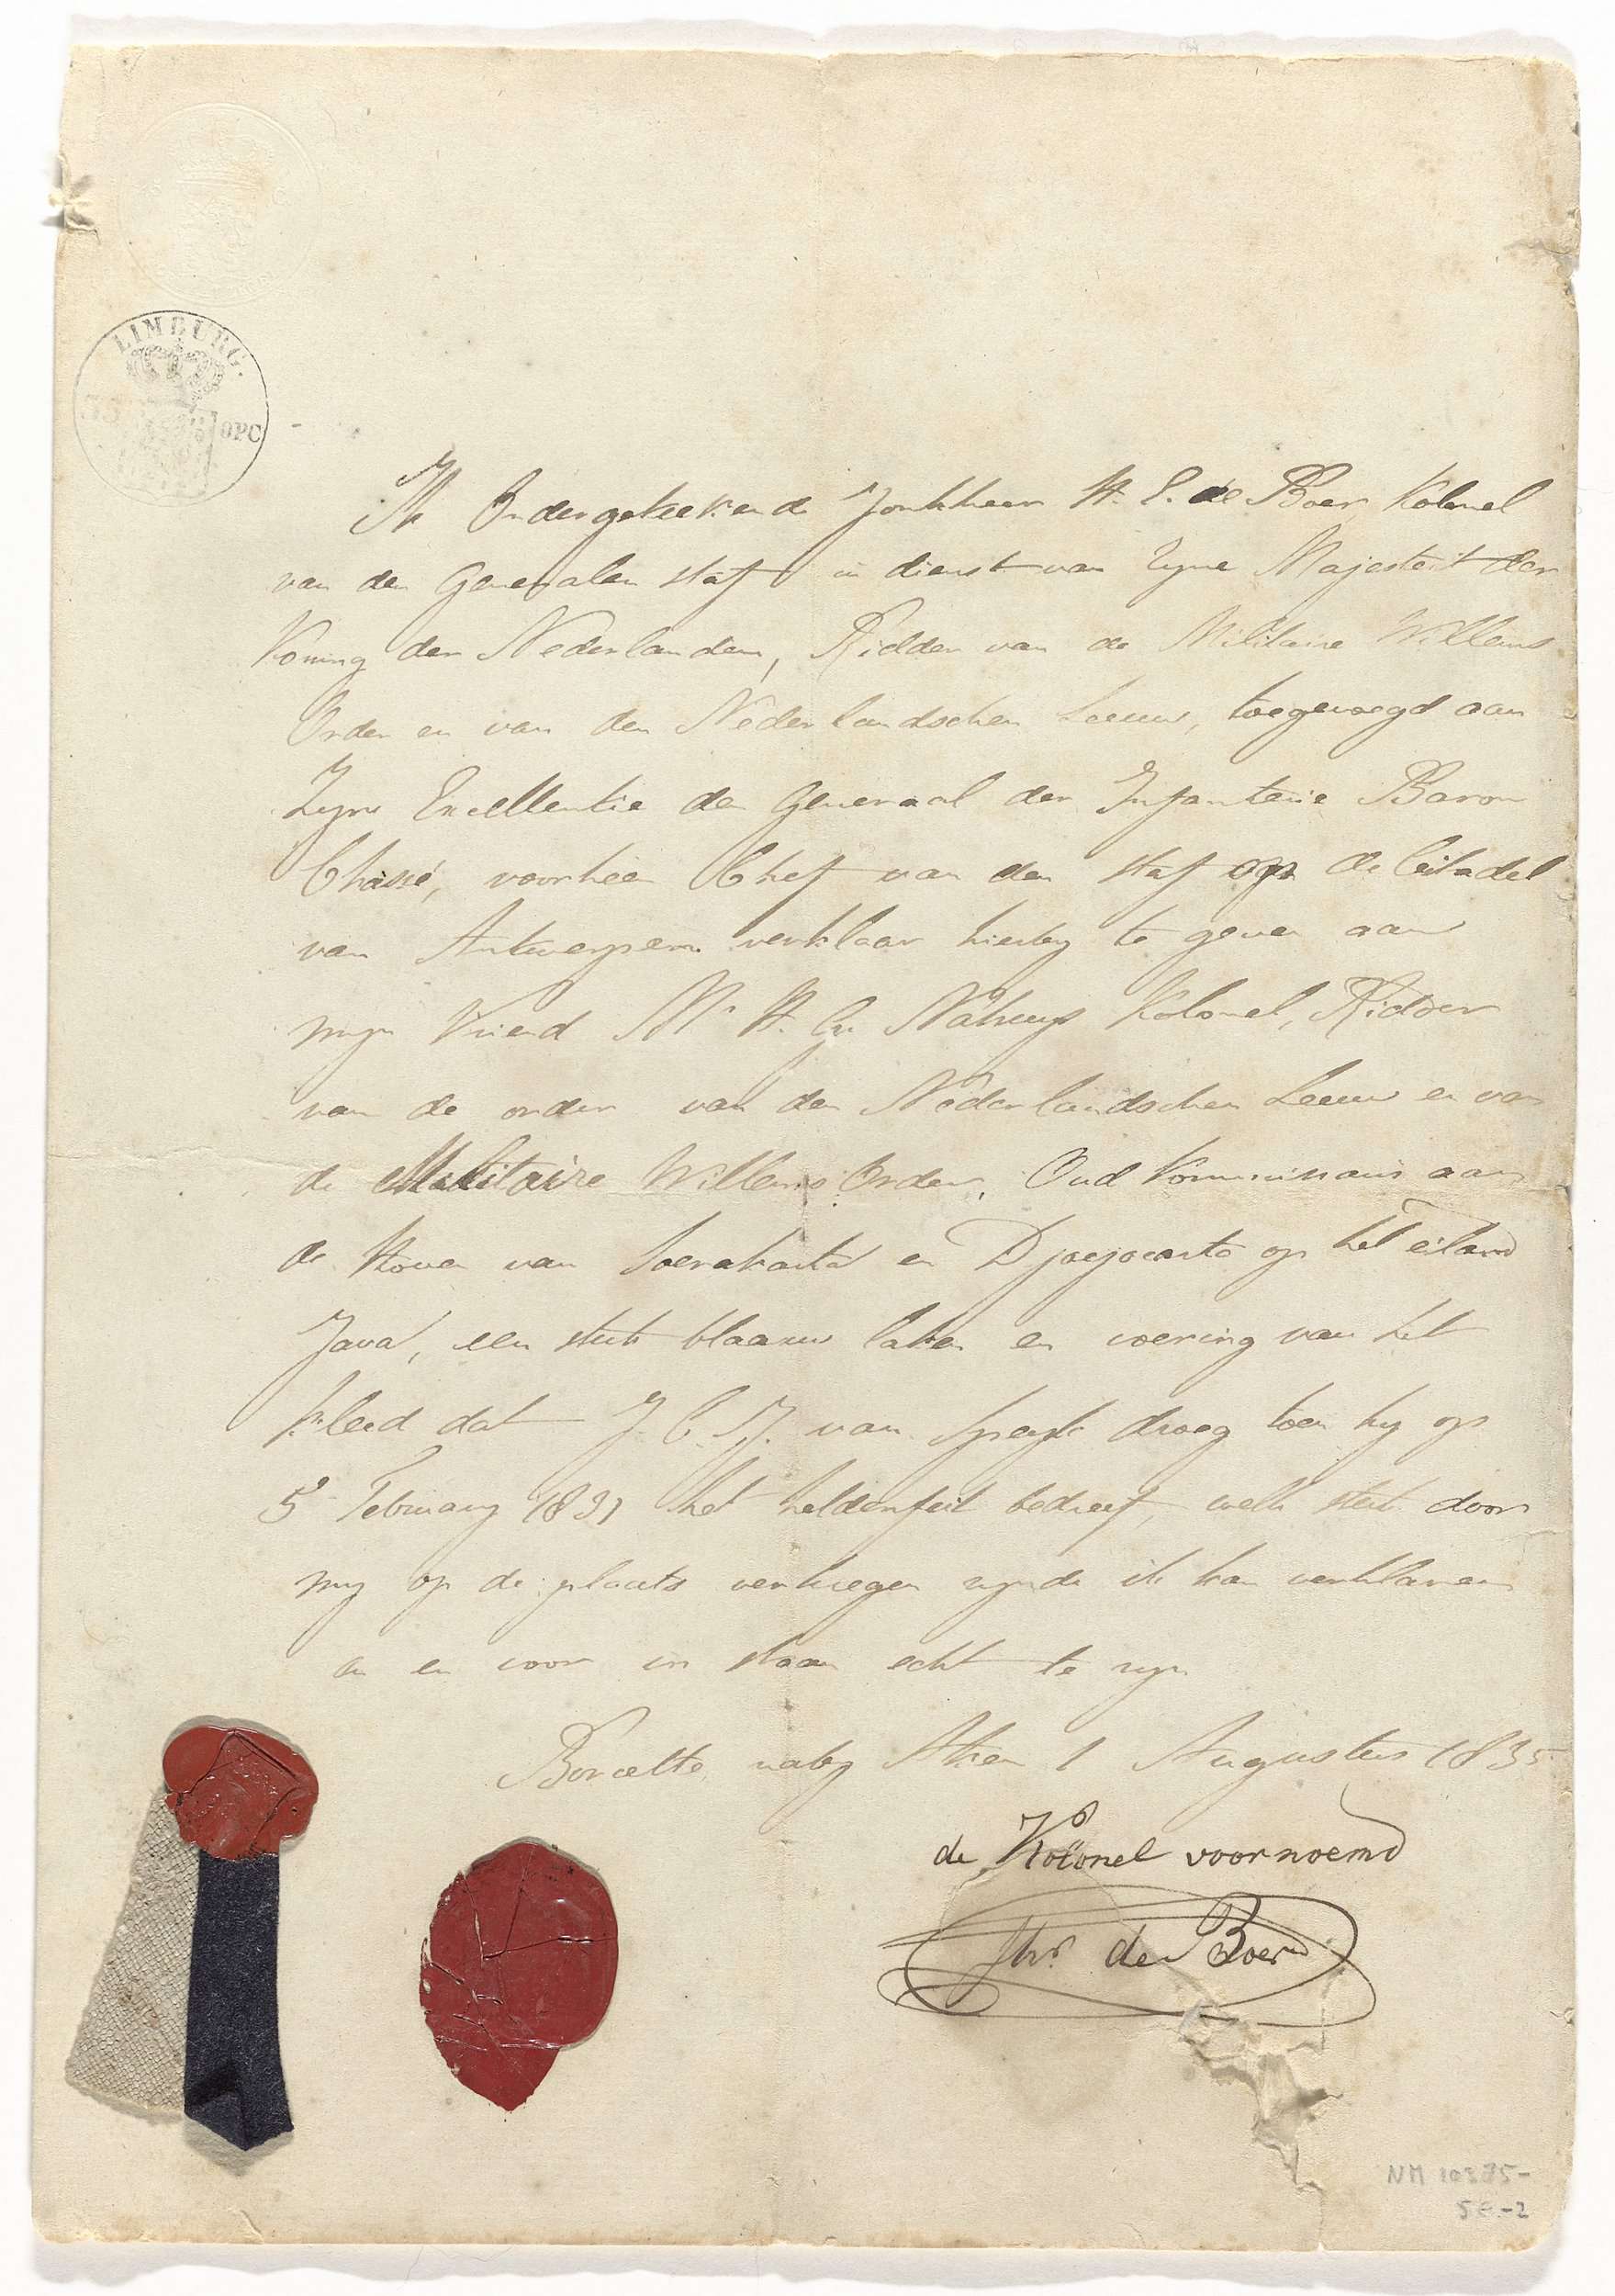 LIMBURG.
OPC
Ik Ondergeteekende Jonkheer H. E. de Boer, Kolonel
van den Generalen staf in dienst van Zyne Majesteit den
Koning der Nederlanden, Ridder van de Militaire Willems
Orden en van den Nederlandschen Leeuw, toegevoegd aan
Zyne Excellentie den Generaal der Infanterie Baron
Chassé, voorheen Chef van den staf op de Citadel
van Antwerpen verklaar hierby te geven aan
myn Vriend Mr H. G. Nahuys Kolonel, Ridder
van de orden van den Nederlandschen Leeuw en van
de Militaire Willems Orden, Oud Kommissaris aan
de Hoven van Soerakarta en Djocjocarta op het eiland
Java, een stuk blaauw laken en voering van het
kleed dat J. C. J. van Speyk droeg toen hy op
5 February 1831 het heldenfeit bedreef, welk stuk door
my op de plaats verkregen zynde ik kan verklaren
en er voor in staan echt te zyn
Borcette naby Aken 1 Augustus 1835
de Kolonel voornoemd
Jhr. de Boer
NM 10375-
5 -2